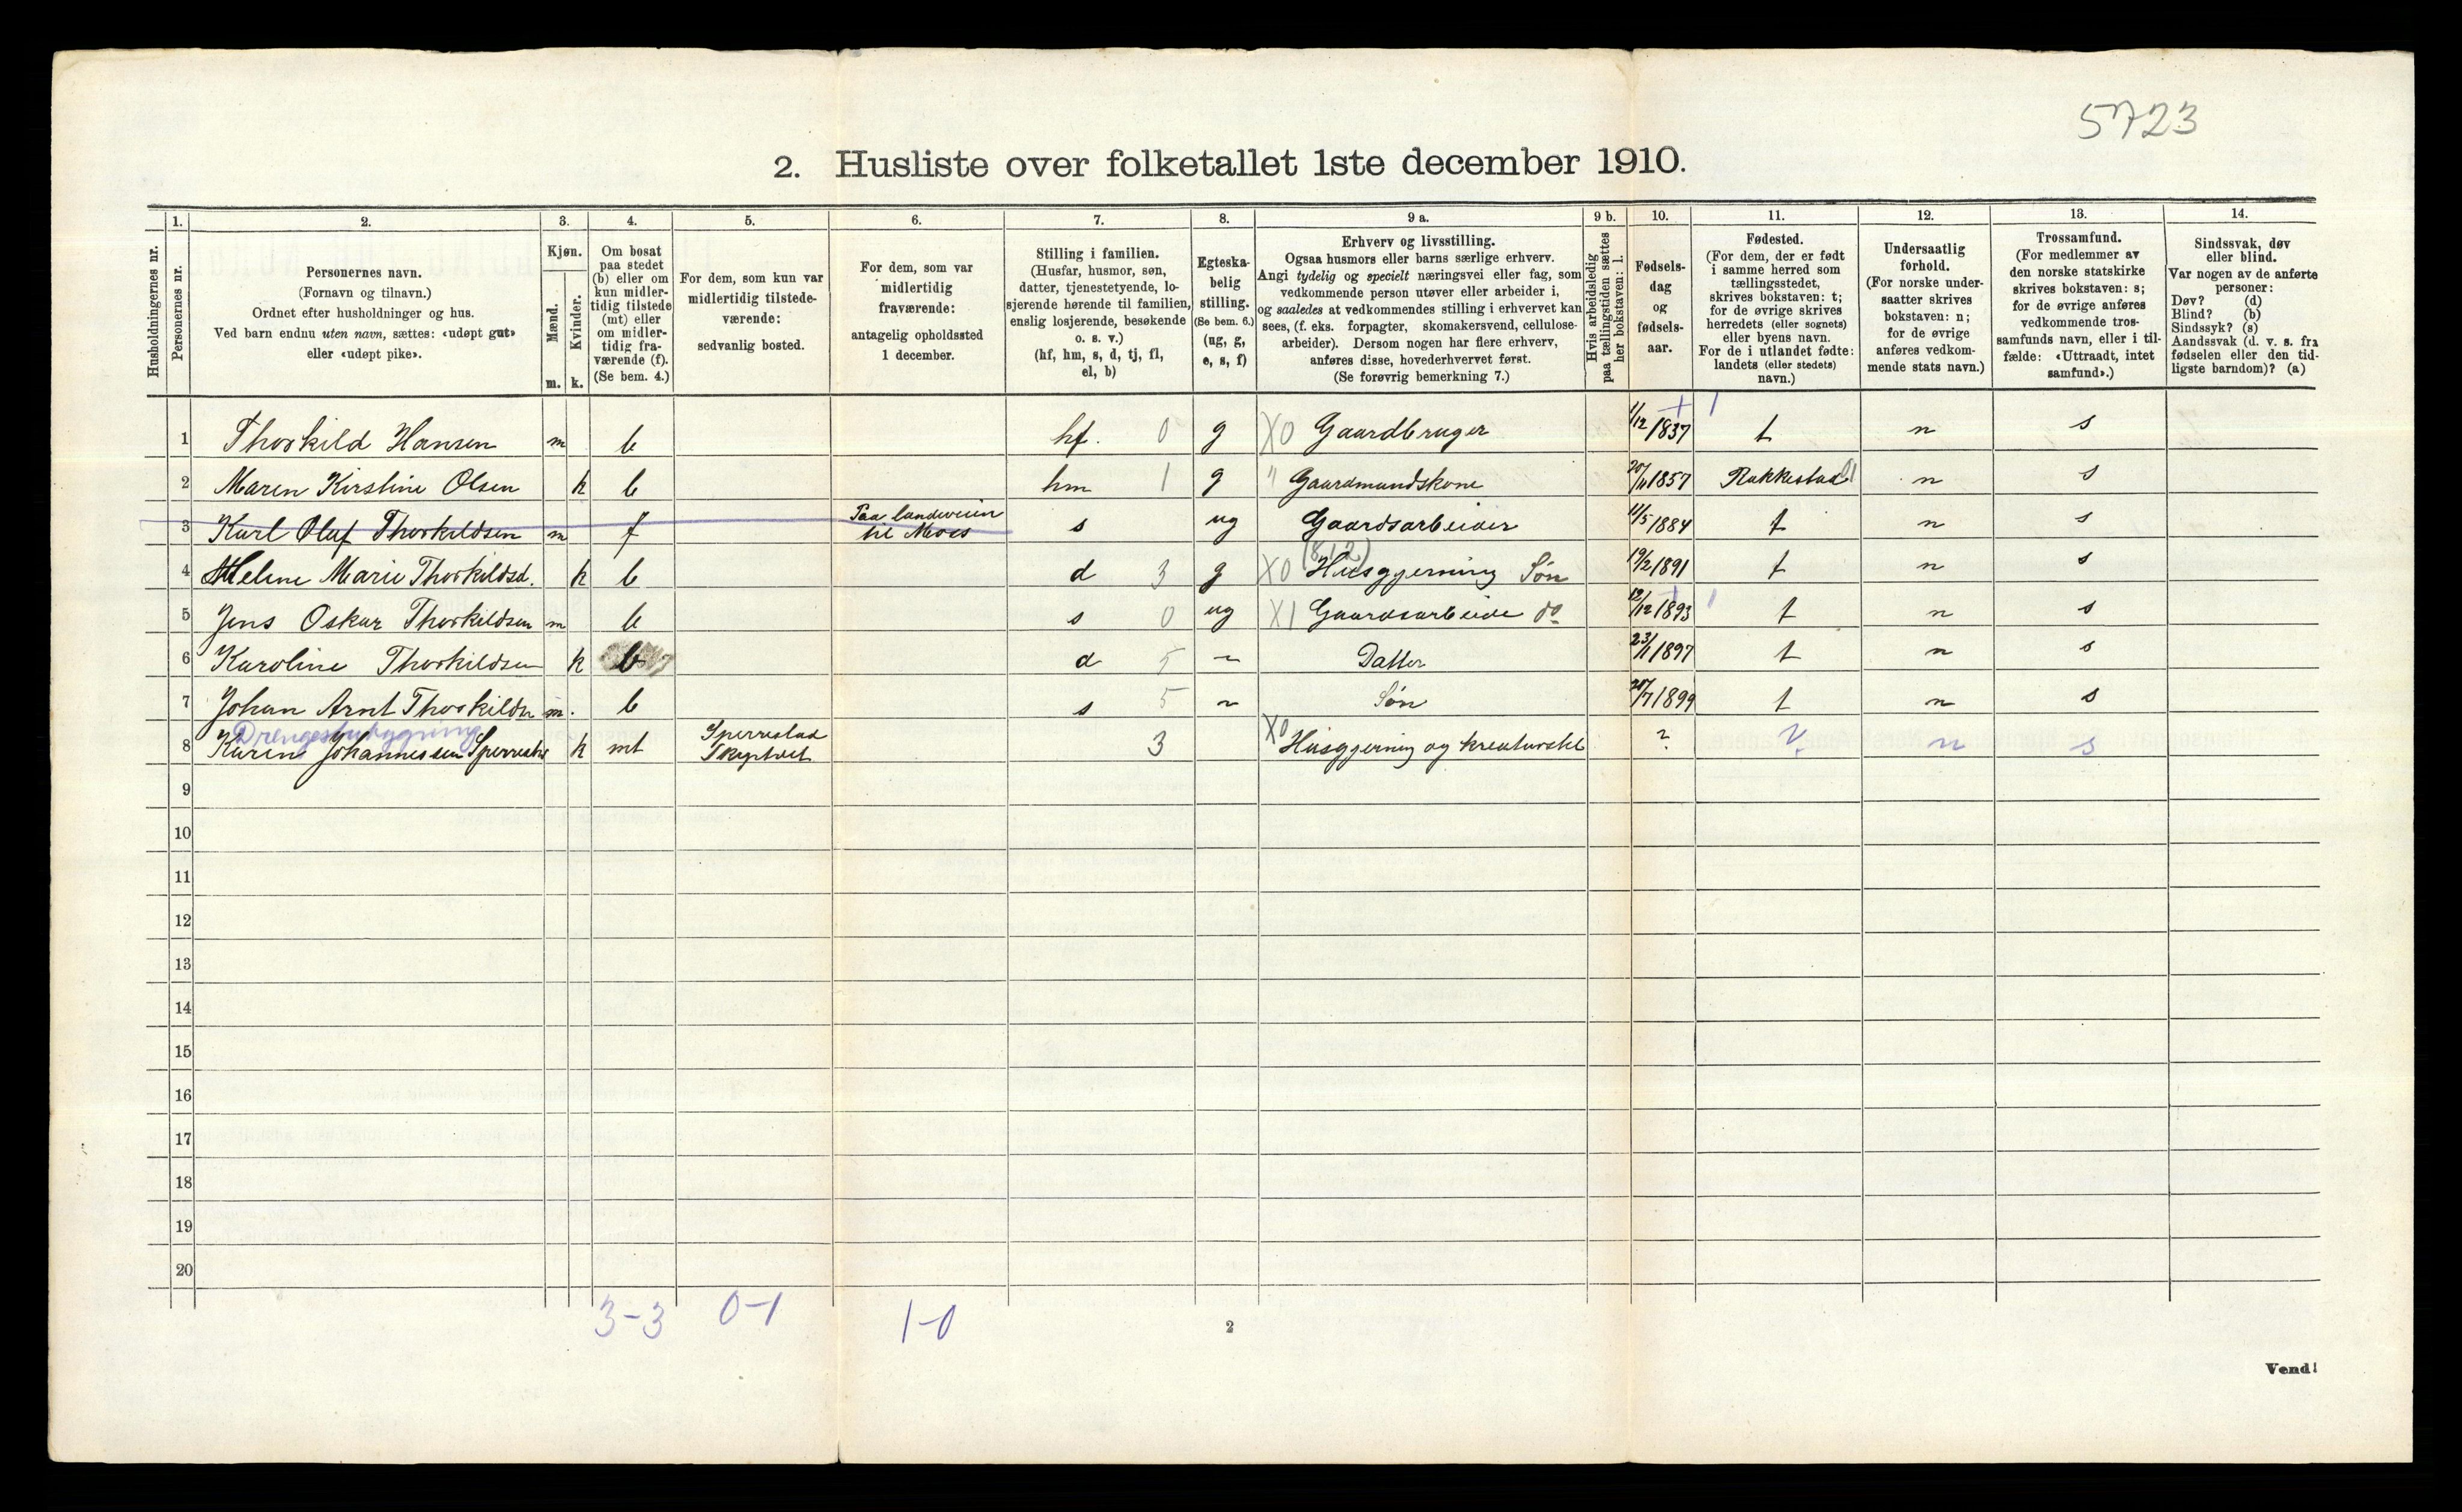 5723
2. Husliste over folketallet 1ste december 1910.
Husholdningernes nr.
1.
Personernes nr.
2.
Personernes navn.
(Fornavn og tilnavn.)
Ordnet efter husholdninger og hus.
Ved barn endnu uten navn, sættes: «udøpt gut»
eller «udøpt pike».
3.
Kjøn.
Mænd.
Kvinder.
m. k.
4.
Om bosat
paa stedet
(b) eller om
kun midler-
tidig tilstede
(mt) eller
om midler-
tidig fra-
værende (f).
(Se bem. 4.)
5.
For dem, som kun var
midlertidig tilstede-
værende:
sedvanlig bosted.
6.
For dem, som var
midlertidig
fraværende:
antagelig opholdssted
1 december.
7.
Stilling i familien.
(Husfar, husmor, søn,
datter, tjenestetyende, lo-
sjerende hørende til familien,
enslig losjerende, besøkende
o. s. v.)
(hf, hm, s, d, tj, fl,
el, b)
8.
Egteska-
belig
stilling.
(Se bem. 6.)
(ug, g,
e, s, f)
9 a.
Erhverv og livsstilling.
Ogsaa husmors eller barns særlige erhverv.
Angi tydelig og specielt næringsvei eller fag, som
vedkommende person utøver eller arbeider i,
og saaledes at vedkommendes stilling i erhvervet kan
sees, (f. eks. forpagter, skomakersvend, cellulose-
arbeider). Dersom nogen har flere erhverv,
anføres disse, hovederhvervet først.
(Se forøvrig bemerkning 7.)
9 b.
Hvis arbeidsledig
paa tællingstiden sættes
her bokstaven: l.
10.
Fødsels-
dag
og
fødsels-
aar.
11.
Fødested.
(For dem, der er født
i samme herred som
tællingsstedet,
skrives bokstaven: t;
for de øvrige skrives
herredets (eller sognets)
eller byens navn.
For de i utlandet fødte:
landets (eller stedets)
navn.)
12.
Undersaatlig
forhold.
(For norske under-
saatter skrives
bokstaven: n;
for de øvrige
anføres vedkom-
mende stats navn.)
13.
Trossamfund.
(For medlemmer av
den norske statskirke
skrives bokstaven: s;
for de øvrige anføres
vedkommende tros-
samfunds navn, eller i til-
fælde: «Uttraadt, intet
samfund».)
14.
Sindssvak, døv
eller blind.
Var nogen av de anførte
personer:
Døv? (d)
Blind? (b)
Sindssyk? (s)
Aandssvak (d. v. s. fra
fødselen eller den tid-
ligste barndom)? (a)
1 Thorkild Hansen m b hf. 0 g X0 Gaardbruger 1/12 1837 t n s
2 Maren Kirstine Olsen k b hm 1 g " Gaardmandskone 20/11 1857 Rakkestad n s
3 Karl Olaf Thorkildsen m f Paa landeveien til Moss s ug Gaardsarbeider 11/5 1884 t n s
4 Helene Marie Thorkildsd. k b d 3 g X0 Husgjerning Søn 19/2 1891 t n s
5 Jens Oskar Thorkildsen m b s 0 ug X1 Gaardsarbeide do 12/12 1893 t n s
6 Karoline Thorkildsen k b d 5 ~ Datter 23/1 1897 t n s
7 Johan Arnt Thorkildn m. b s 5 ~ Søn 20/7 1899 t n s
Drengestubygning
8 Karen Johannessen Sperrestad k mt Sperrestad Skiptvet 3 X0 Husgjerning og kreaturstel ? ? n s
9
10
11
12
13
14
15
16
17
18
19
20
3-3 0-1 1-0
2
Vend!